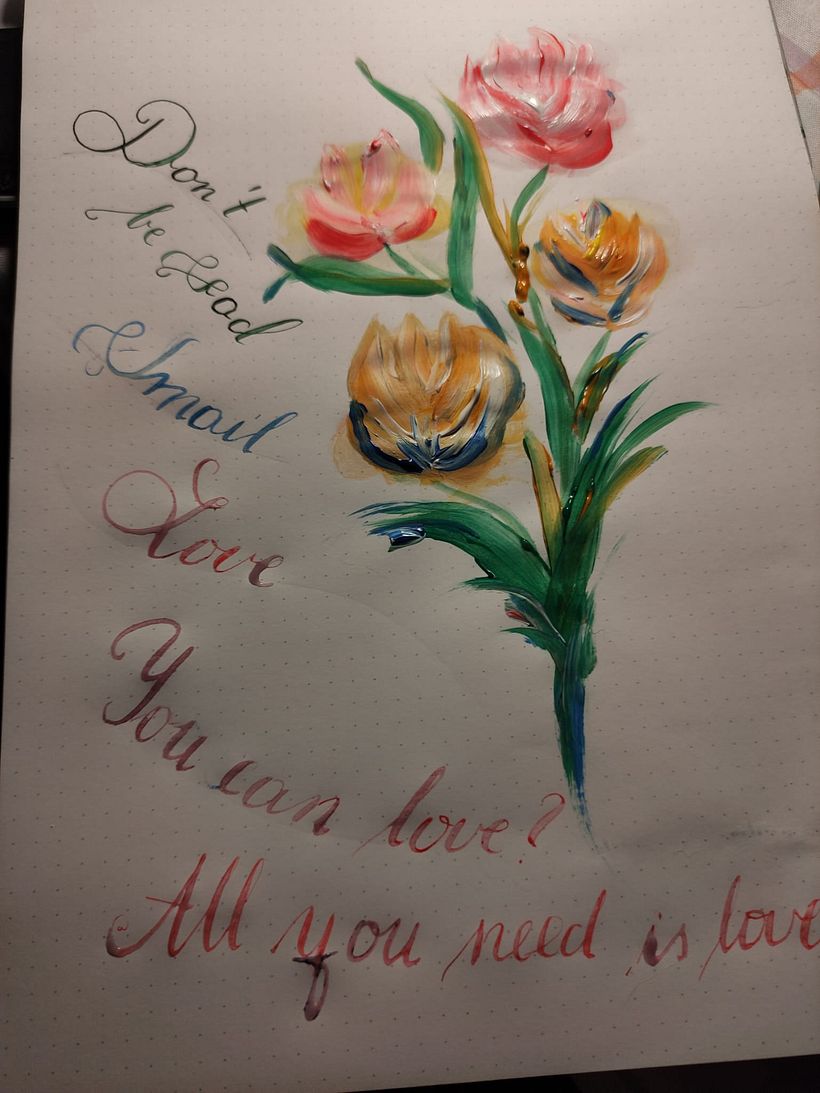 Don't
be Sad
Smail
Love
You can love?
All you need is love